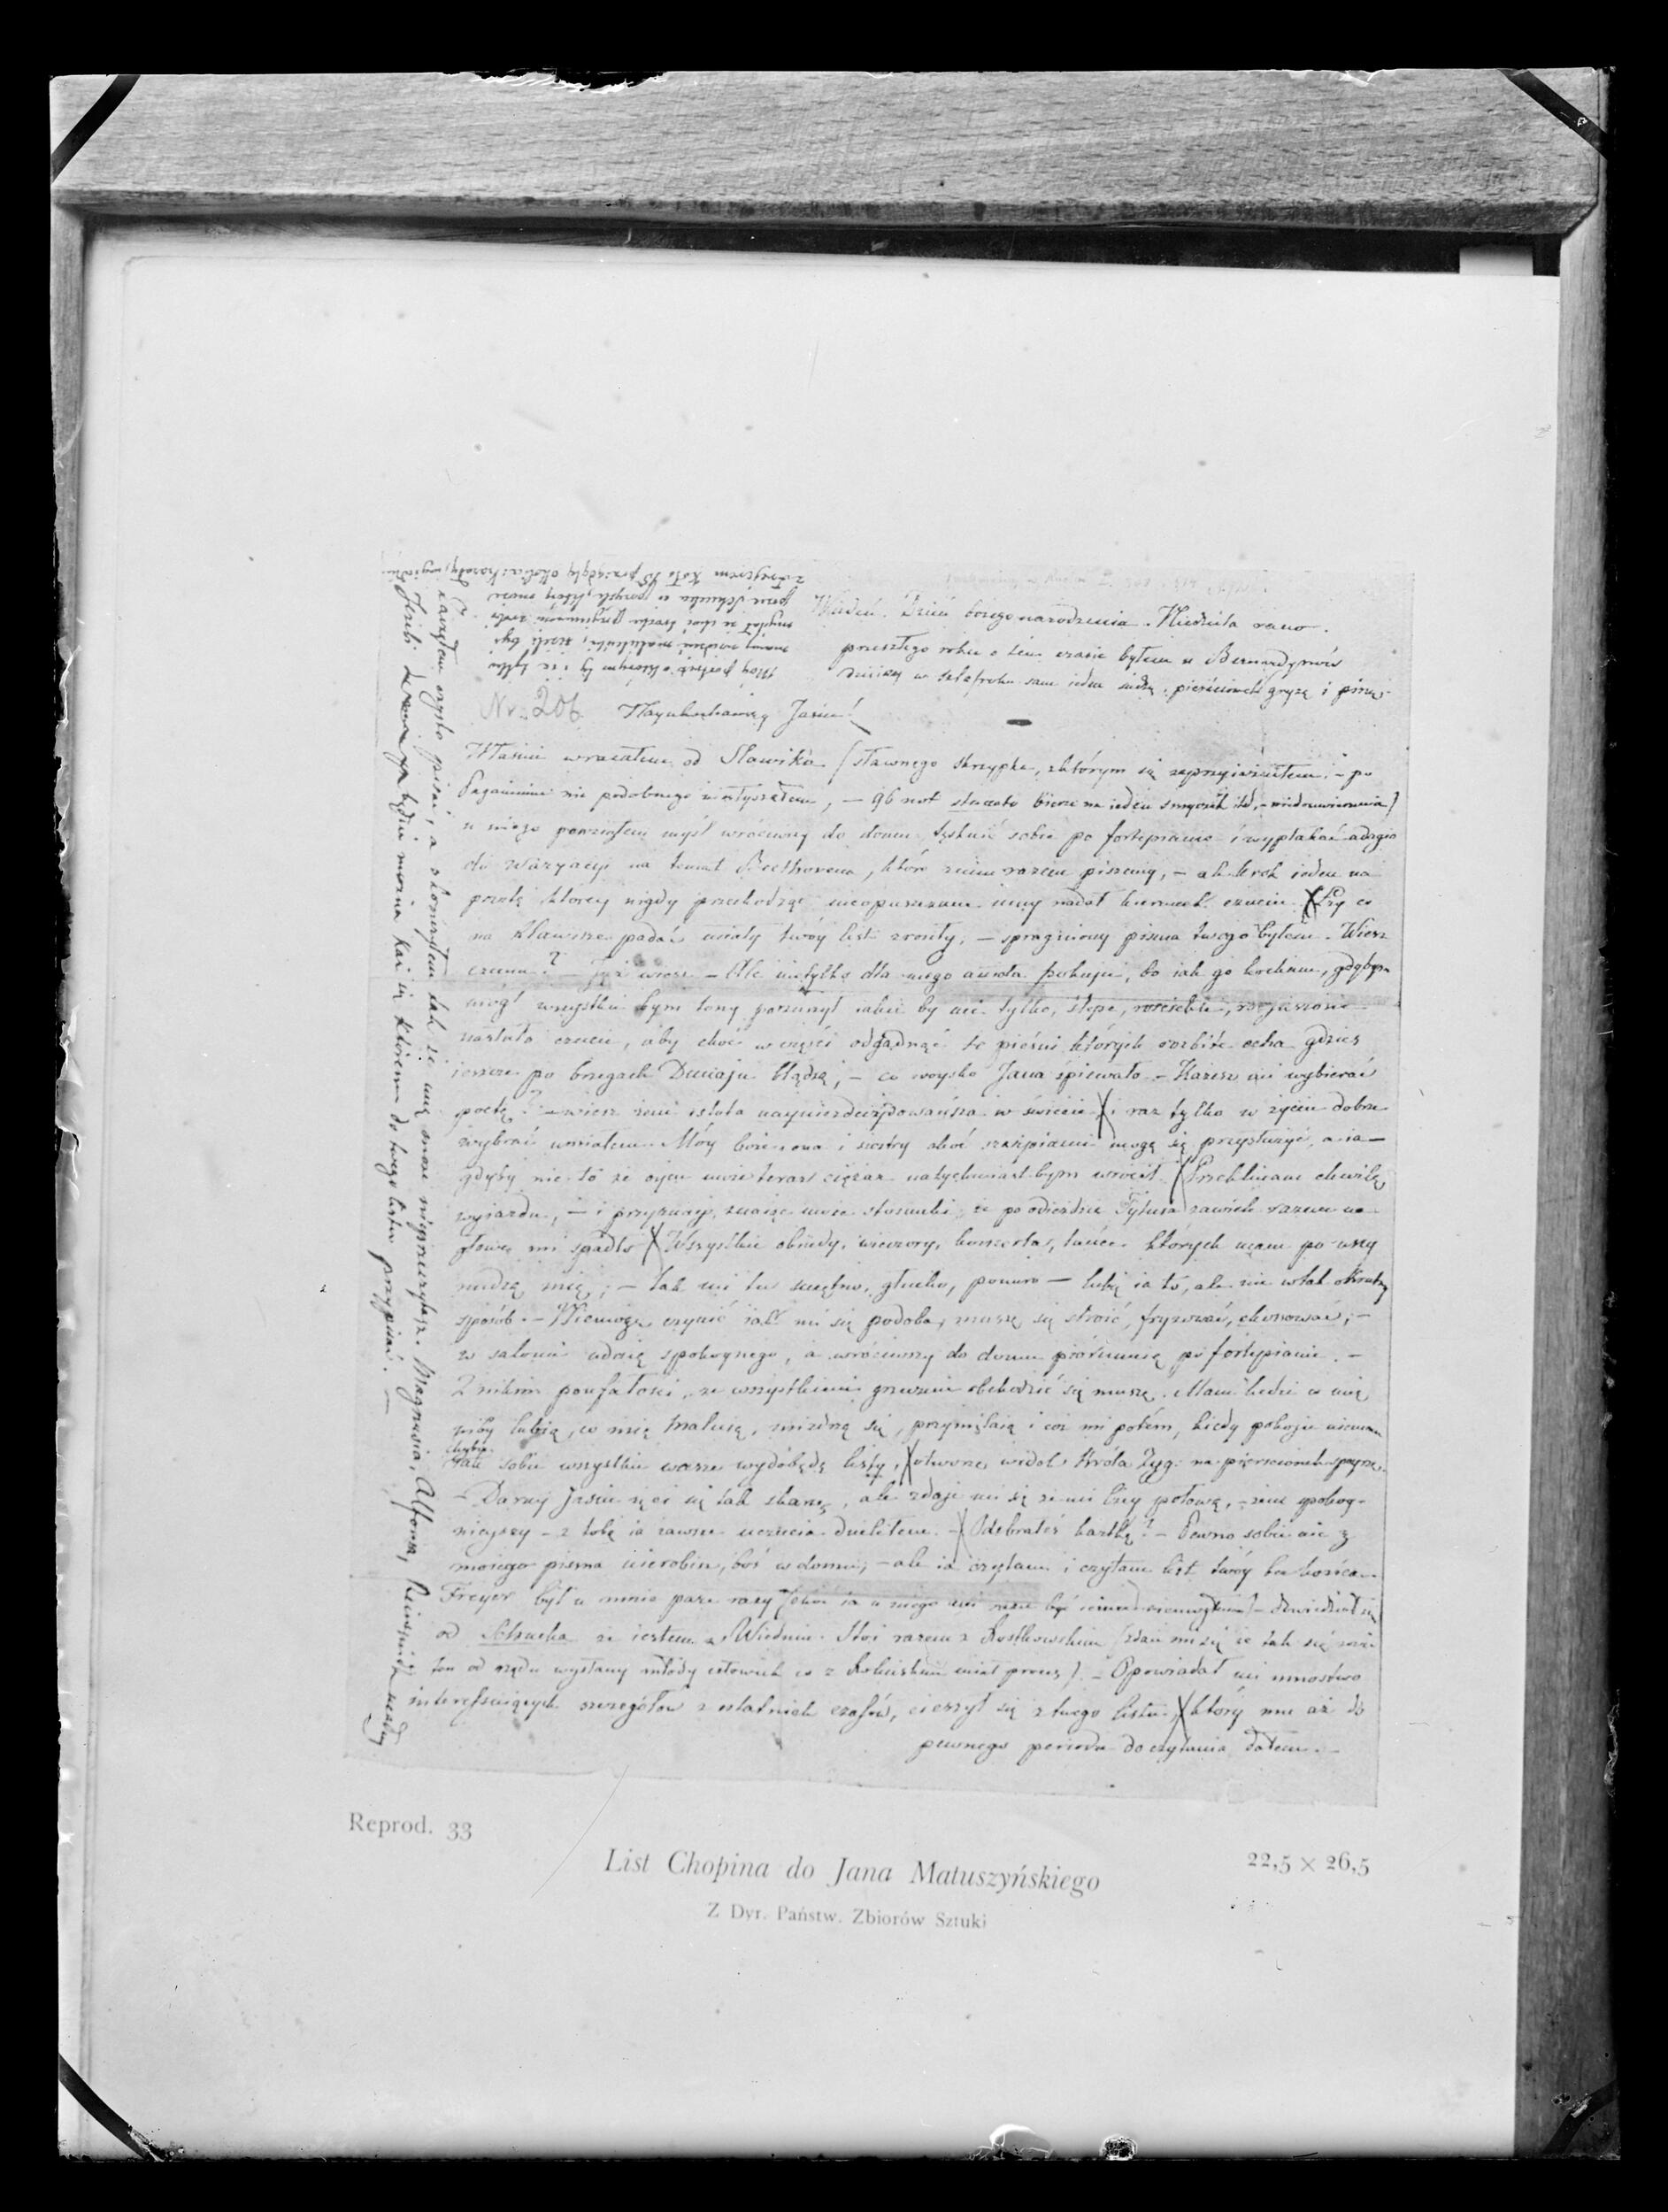 Wiedeń. Dzień bożego narodzenia. Niedziela rano.
przeszłego roku o tem czasie byłem u Bernardynów
dzisiaj w szlafroku sam jeden siedzę, pierścionek gryzę i piszę.
Nr. 206 Naykochańszy Jasiu!
Właśnie wracałem od Slawika (sławnego skrzypka, z którym się zaprzyjaźniłem; – po
Paganinim nic podobnego niesłyszałem, – 96 not staccato bierze na jeden smyczek itd, – niedouwierzenia)
u niego powziąłem myśl wróciwszy do domu tęsknić sobie po fortepianie i wypłakać adagio
do Waryacyi na temat Beethovena, które z nim razem piszemy, – ale krok jeden na
pocztę, którey nigdy przechodząc nieopuszczam inny nadał kierunek czuciu. Łzy co
na klawisze padać miały twóy list zrosiły, – spragniony pisma twego byłem. Wiesz
czemu? – Już wiesz – Ale nietylko dla mego anioła pokoju, bo jak go kocham, gdybym
mógł wszystkie bym tony poruszył jakie by mi tylko, ślepe, wściekłe, rozjuszone
nasłało czucie, aby choć w części odgadnąć te pieśni których rozbite echa gdzieś
jeszcze po brzegach Dunaju błądzą, – co woysko Jana śpiewało – Każesz mi wybierać
poetę? – wiesz żem istota nayniezdecydowańsza w świecie i raz tylko w życiu dobrze
wybrać umiałem. Móy boże ona i siostry choć szarpiami mogą się przysłużyć, a ja –
gdyby nie to że oycu może teraz ciężar natychmiast bym wrócił. Przeklinam chwilę
wyjazdu, – i przyznay, znając moje stosunki, że po odieździe Tytusa zawiele razem na
głowę mi spadło Wszystkie obiady, wieczory, koncerta, tańce których mam po uszy
nudzą mię; – tak mi tu smętno, głucho, ponuro – lubię ja to, ale nie w tak okrutny
sposób. – Niemogę czynić jak mi się podoba, muszę się stroić, fryzować, chossować; –
w salonie udaię spokoynego, a wróciwszy do domu piorunuię po fortepianie. –
Z nikim poufałości, ze wszystkiemi grzecznie obchodzić się muszę. Mam ludzi co mię
niby lubią, co mię malują, mizdrzą się, przymilaią i cóż mi potem, kiedy pokoju niemam
chyba
jak sobie wszystkie wasze wydobędę listy, otworzę widok Króla Zyg: na pierścionek spojrzę.
– Daruy Jasiu że ci się tak skarżę, ale zdaje mi się że mi lżey połowę, – żem spokoy-
nieyszy – z tobą ja zawsze uczucia dzieliłem. – Odebrałeś kartkę? – Pewno sobie nic z
mojego pisma nierobisz, boś w domu; – ale ja czytam i czytam list twóy bez końca.
Freyer był u mnie parę razy
od Schucha że jestem w Wiedniu. Stoi razem z Rostkowskim (zdaje mi się że tak się zowie
ten od rządu wysłany młody człowiek co z Rolińskim miał proces). – Opowiadał mi mnóstwo
interessuiących szczegółów z ostatnich czasów, cieszył się z twego listu, który mu aż do
pewnego periodu do czytania dałem. –
zacząłem czysto pisać, a skończyłem tak że mię może nieprzeczytasz. Magnusia, Alfonsa, Reinschmidta uściśnij
Jeżeli
będzie można każ się któremu do twego listu przypisać. –
Reprod. 33
List Chopina do Jana Matuszyńskiego
22,5 × 26,5
Z Dyr. Państw. Zbiorów Sztuki